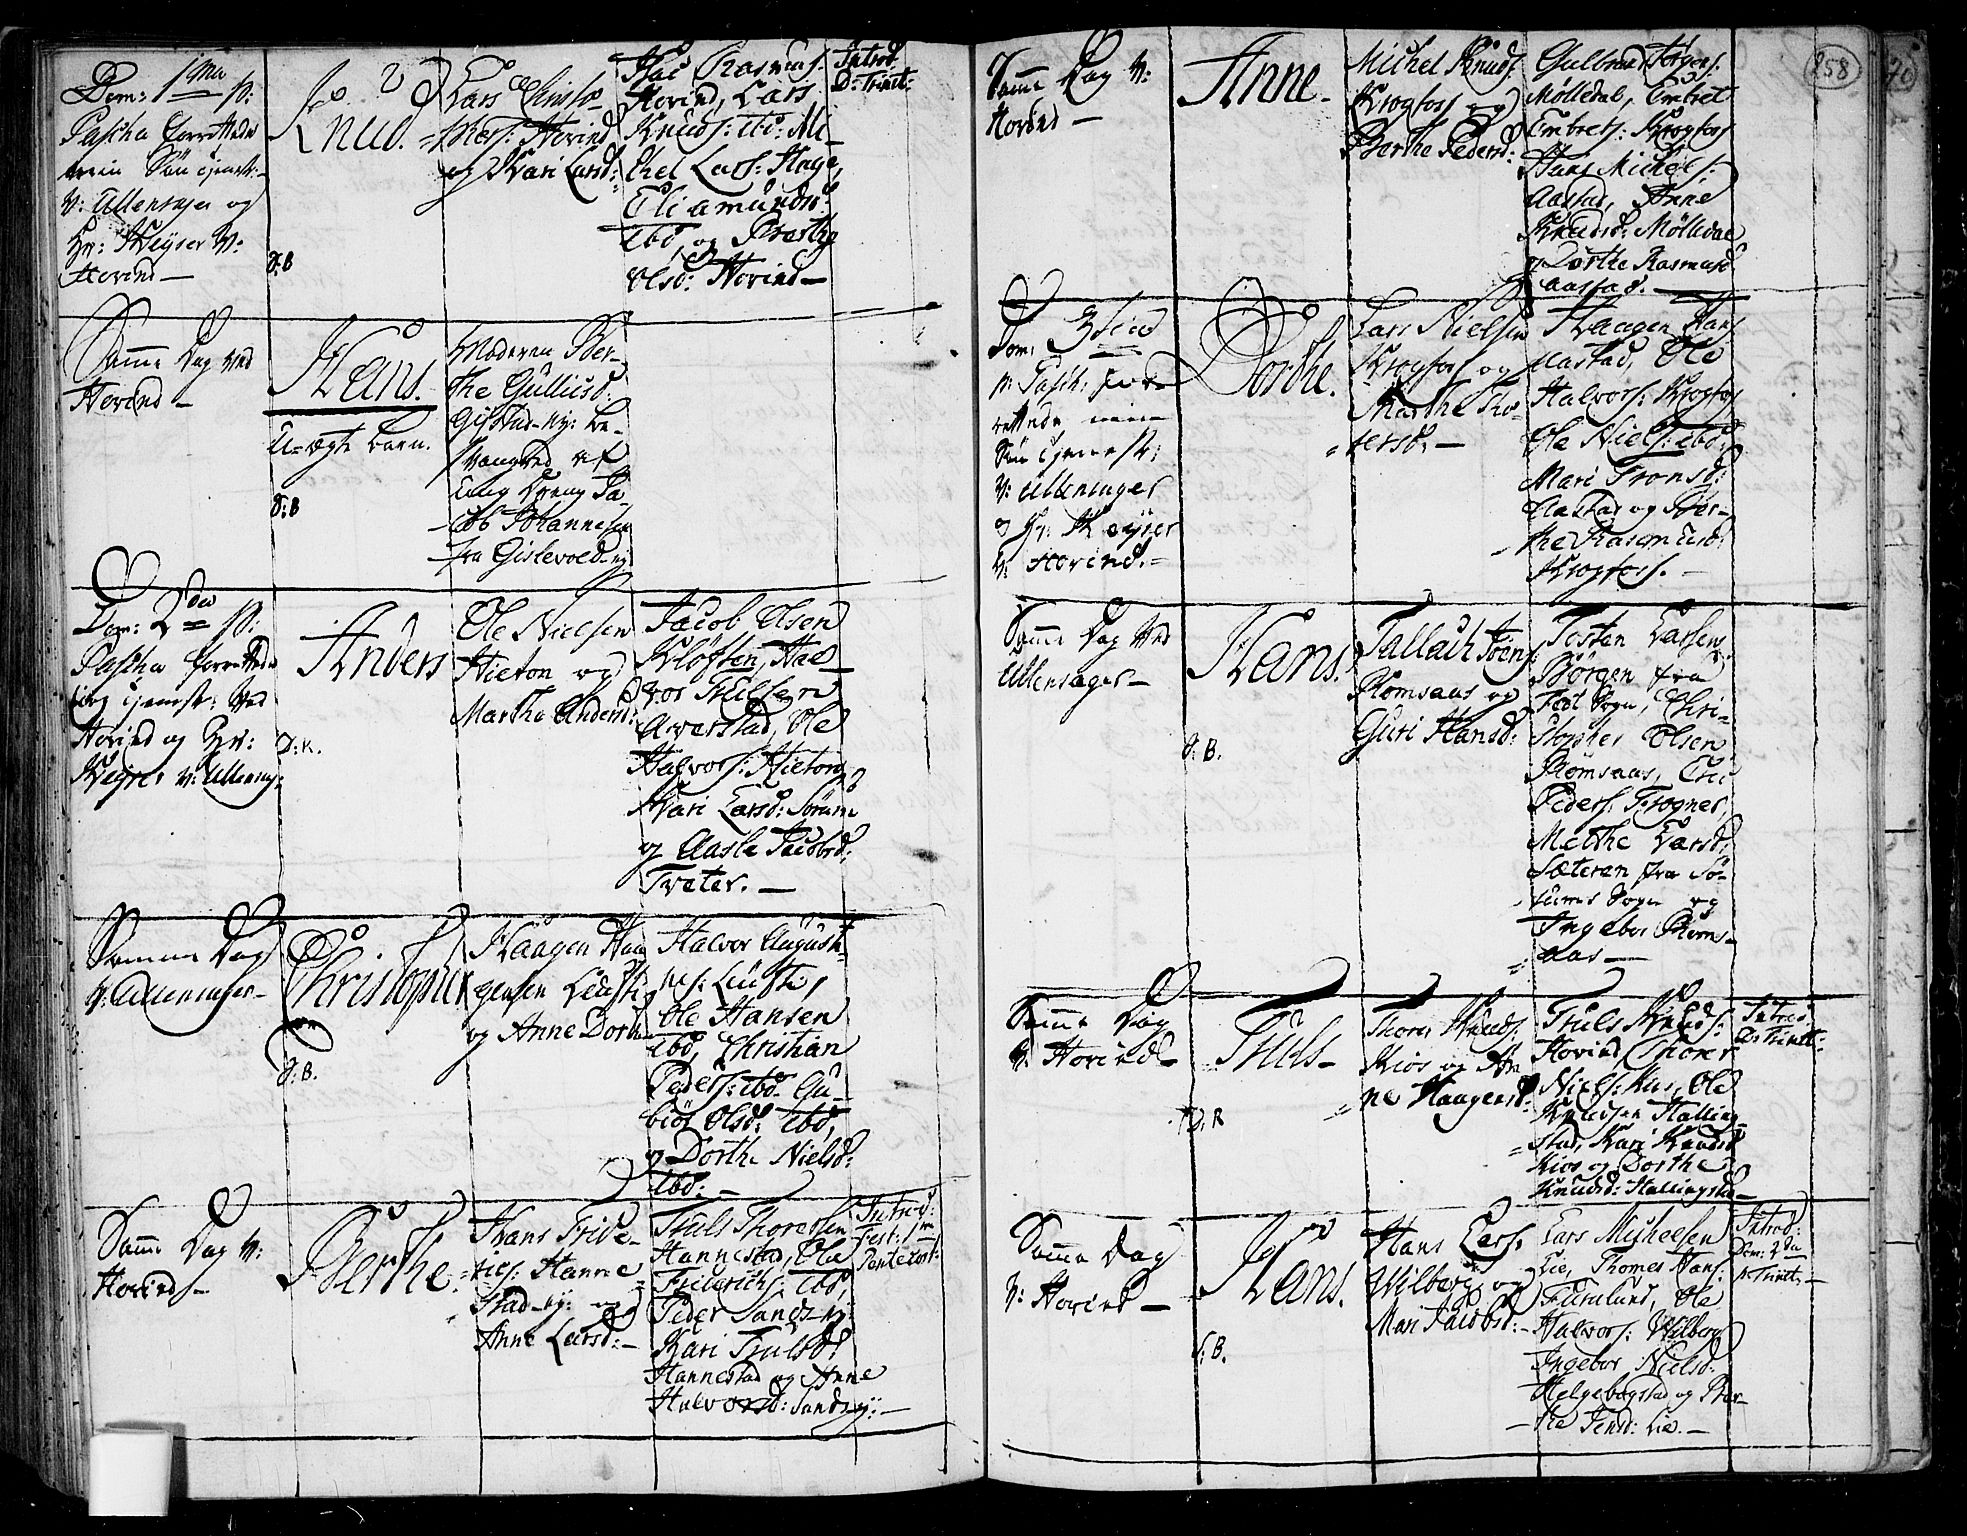 Dom: 1ma p:
Pascha forrettede
min Søn tjenest:
v: Ullensager og
Hr: Keyser v:
Hovind —
Knud.
d: B
Lars Christo-
phers: Hovind
og Kari Larsd:
Hovind, Lars
Knuds: ibd: Mi-
chel Lars: Hage,
Eli Amundsd:
ibd, og Berthe
Olsd: Hovind —
Introd
D: Trinit:
Samme Dag ved
Hovind —
Hans.
U-ægte barn.
d: B
Moderen Ber-
the Gulliksd:
Gistad-ey: be-
svangred af
ung Dreng Ja-
cob Johannesen
fra Gislevold-ey
Dom: 2da p:
Pascha forrettede
jeg tjenest: ved
Hovind og Hr:
Keyser v: Ullensag:
Anders
D: K.
Ole Nielsen
Hieton og
Marthe Andersd:
Jacob Olsen
Kløften, Hal-
vor Trulsen
Averstad, Ole
Halvors: Hieton,
Kari Larsd: Sørum
og Aasle Jacobsd:
Tveter. —
Samme Dag
v: Ullensager —
Christopher
d: B.
Haagen Haa-
gensen
og Anne Dorth
Halvor August-
Ole Hansen
ibd, Christian
Peders: ibd. Gu-
biør Olsd: ibd,
og Dorthe Nielsd:
ibd: —
Samme Dag v:
Hovind —
Berthe.
Hans Fride-
rics: Hanne
stad-ey: og
Anne Larsd: —
Truls Thoresen
Hannestad, Ole
Friderichs: ibd,
Peder Sands-ey:
Kari Trulsd:
Hannestad og Anne
Halvorsd: Sandsey: —
Introd:
Fest:
Pentecost:
858
Samme Dag v:
Hovind —
Anne —
Michel Knuds:
Krogfoss og
Berthe Pedersd:
Gulbrand Jørgens:
Mølledal, Embret
Embrets: Krogfoss
Hans Michels:
Aastad, Anne
Knudsd: Mølledal
og Dorthe Rasmusd
Aastad. —
Dom: 3tia
p: Pasch: for-
rettede min
Søn tjenest:
v: Ullensager
og Hr: Keyser
v: Hovind. —
Dorthe.
Lars Nielsen
Krogfoss og
Marthe Tho-
resd. —
Haagen Hans
Aastad, Ole
Halvors: Krogfos
Ole Niels: ibd:
Mari Tronsd:
Aastad og Ber-
the Rasmusd:
Krogfoss. —
Samme Dag ved
Ullensager —
Hans.
d: B.
Tallach Joens:
Romsaas og
Guri Hansd:
Tosten Larsen
Børgen fra
Fedt Sogn, Chri-
stopher Olsen
Romsaas, Eric
Peders: Frogner,
Methe Larsd:
Sæteren fra Sø-
rums Sogn og
Ingebor Roms-
aas —
Samme Dag
v: Hovind —
Truls —
D. K
Thorer Knuds:
Kios og An
ne Haagensd:
Truls Knuds:
Hovind Thorer
Niels: Kus, Ole
Knudsen Halling-
stad, Kari Knudsd
Kios og Dorthe
Knudsd: Hallingstad —
Introd
D: Trinit:
Samme Dag
v: Hovind —
Hans.
d: B.
Hans Lars:
Wilberg og
Mari Jacobsd: —
Lars Michelsen
Lie, Thomes Hans:
Furulund, Ole
Halvors: Wilberg
Ingebor Nielsd:
Helgebogstad og Ber-
the Jensd: Lie. —
Introd:
Dom: 2da
p: Trinit: —